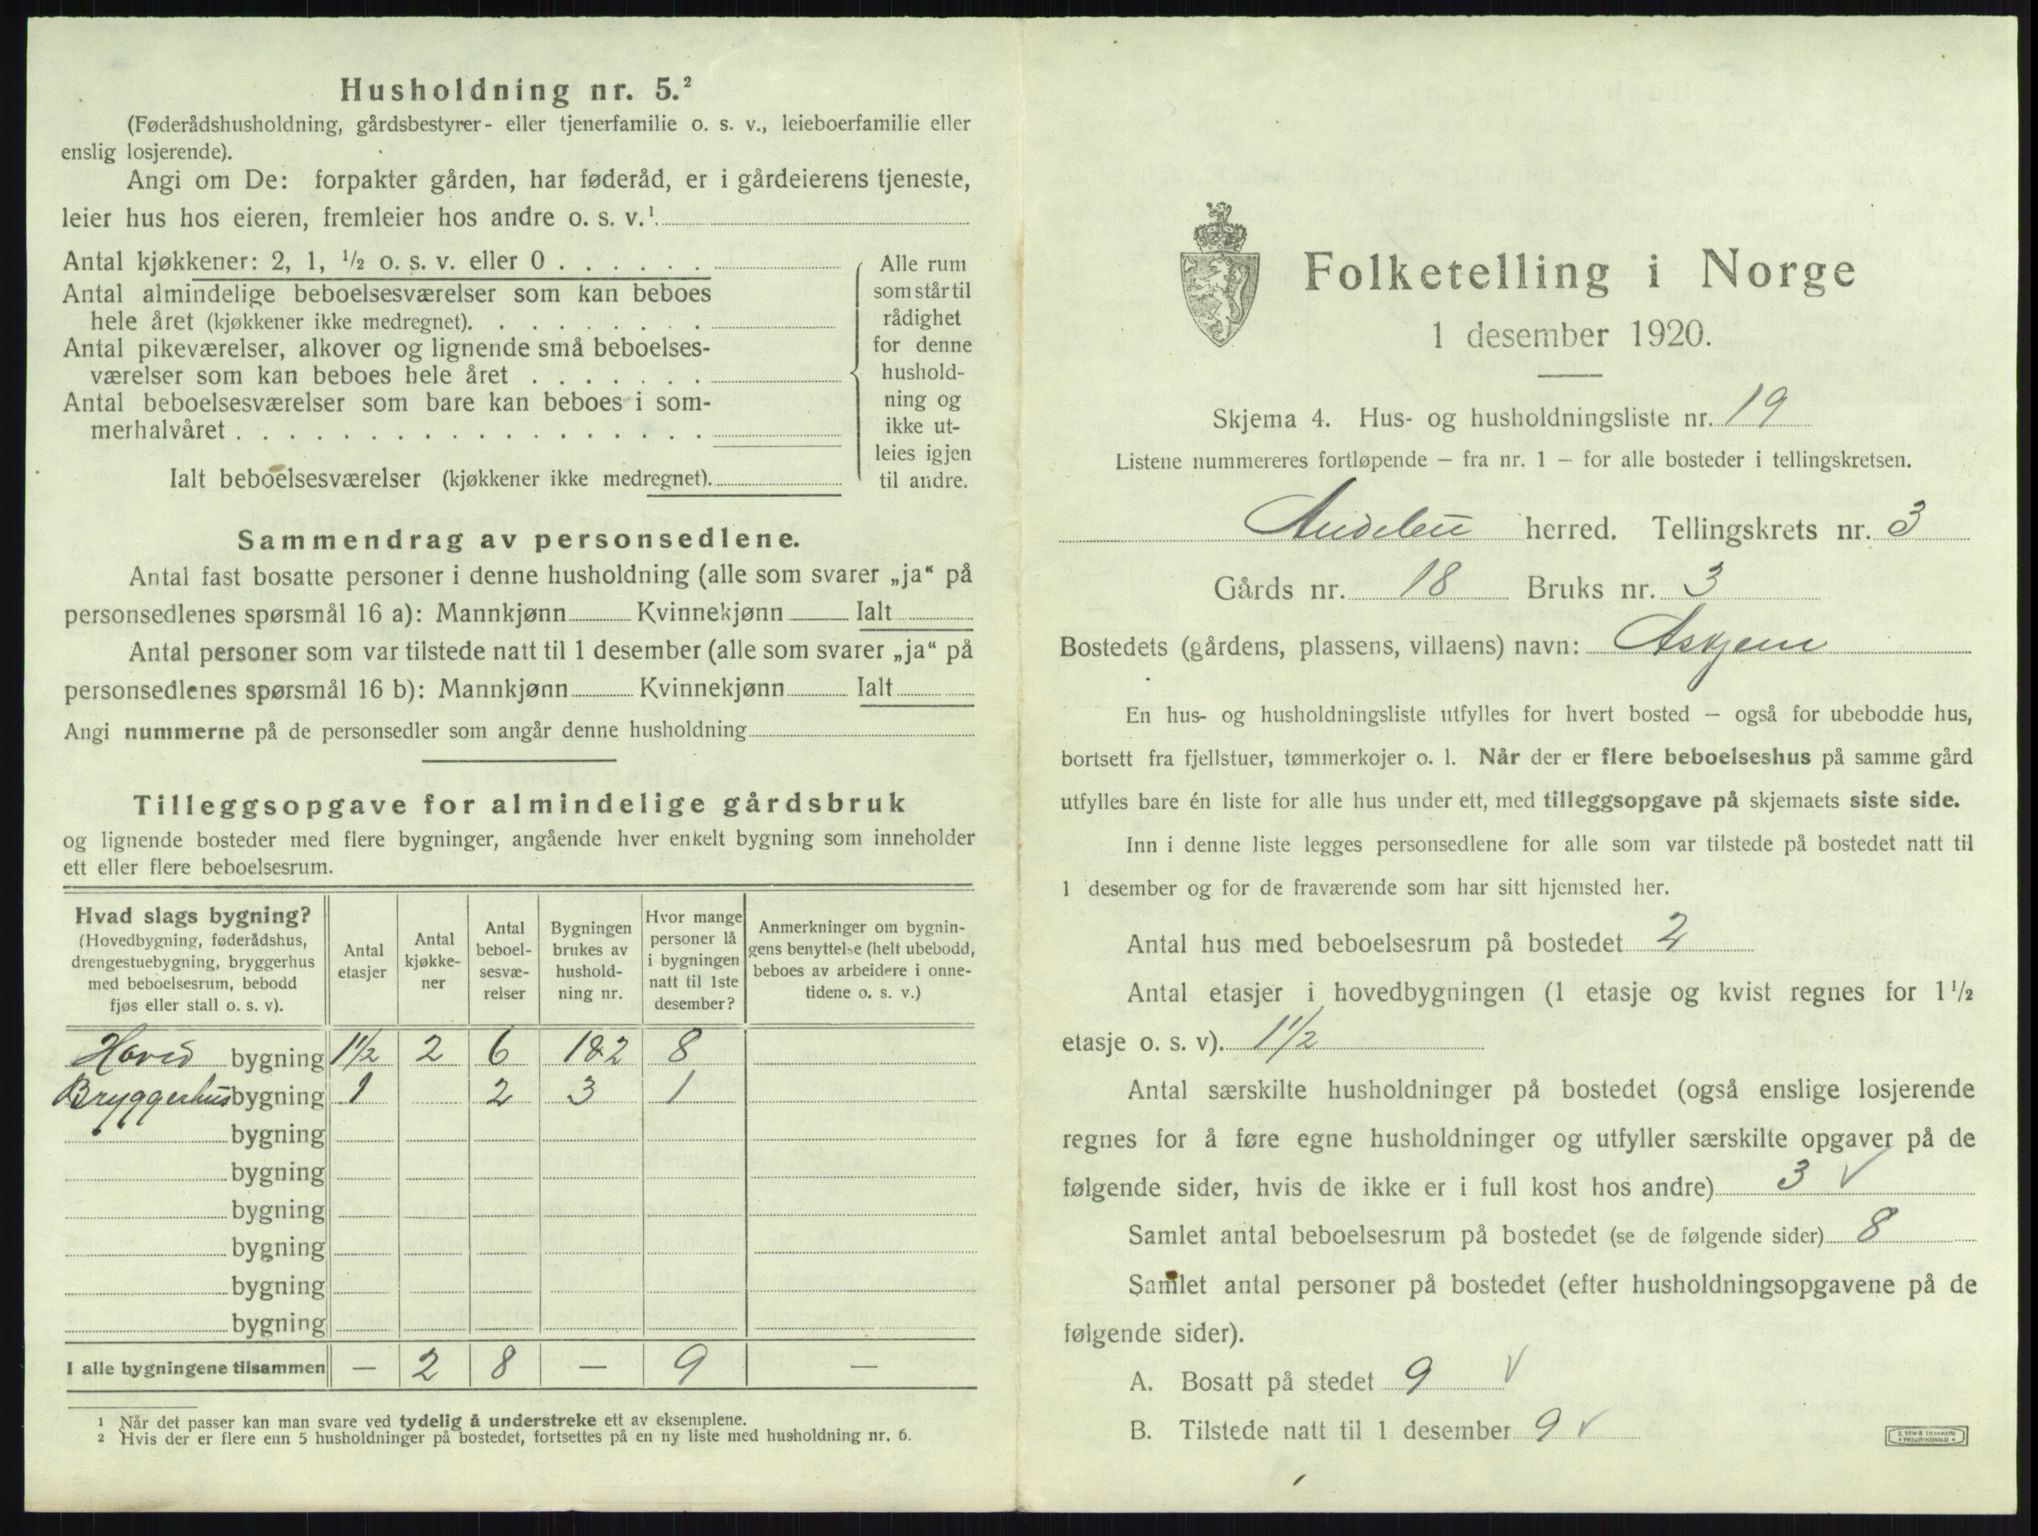 Husholdning nr. 5.²
(Føderådshusholdning, gårdsbestyrer- eller tjenerfamilie o. s. v., leieboerfamilie eller
enslig losjerende).
Angi om De: forpakter gården, har føderåd, er i gårdeierens tjeneste,
leier hus hos eieren, fremleier hos andre o. s. v.¹
Antal kjøkkener: 2, 1, ½ o. s. v. eller 0 . . . . . .
Antal almindelige beboelsesværelser som kan beboes
hele året (kjøkkener ikke medregnet). . . . . . . . .
Antal pikeværelser, alkover og lignende små beboelses-
værelser som kan beboes hele året . . . . . . .
Antal beboelsesværelser som bare kan beboes i som-
merhalvåret . . . . . . . . . . . . . . . . . .
Ialt beboelsesværelser (kjøkkener ikke medregnet).
Alle rum
som står til
rådighet
for denne
hushold-
ning og
ikke ut-
leies igjen
til andre.
Sammendrag av personsedlene.
Antal fast bosatte personer i denne husholdning (alle som svarer „ja“ på
personsedlenes spørsmål 16 a): Mannkjønn Kvinnekjønn Ialt
Antal personer som var tilstede natt til 1 desember (alle som svarer „ja“ på
personsedlenes spørsmål 16 b): Mannkjønn Kvinnekjønn Ialt
Angi nummerne på de personsedler som angår denne husholdning
Tilleggsopgave for almindelige gårdsbruk
og lignende bosteder med flere bygninger, angående hver enkelt bygning som inneholder
ett eller flere beboelsesrum.
Hvad slags bygning?
(Hovedbygning, føderådshus,
drengestuebygning, bryggerhus
med beboelsesrum, bebodd
fjøs eller stall o. s. v).
Antal
etasjer
Antal
kjøkke-
ner
Antal
beboel-
sesvæ-
relser
Bygningen
brukes av
hushold-
ning nr.
Hvor mange
personer lå
i bygningen
natt til 1ste
desember?
Anmerkninger om bygnin-
gens benyttelse (helt ubebodd,
beboes av arbeidere i onne-
tidene o. s. v.)
Hoved bygning 1½ 2 6 1&2 8
Bryggerhus bygning 1 2 3 1
bygning
bygning
bygning
bygning
bygning
bygning
I alle bygningene tilsammen — 2 8 — 9 —
¹ Når det passer kan man svare ved tydelig å understreke ett av eksemplene.
² Hvis der er flere enn 5 husholdninger på bostedet, fortsettes på en ny liste med husholdning nr. 6.
Folketelling i Norge
1 desember 1920.
Skjema 4. Hus- og husholdningsliste nr. 19
Listene nummereres fortløpende — fra nr. 1 — for alle bosteder i tellingskretsen.
Andebu herred. Tellingskrets nr. 3
Gårds nr. 18 Bruks nr. 3
Bostedets (gårdens, plassens, villaens) navn: Askjem
En hus- og husholdningsliste utfylles for hvert bosted — også for ubebodde hus,
bortsett fra fjellstuer, tømmerkojer o. l. Når der er flere beboelseshus på samme gård
utfylles bare én liste for alle hus under ett, med tilleggsopgave på skjemaets siste side.
Inn i denne liste legges personsedlene for alle som var tilstede på bostedet natt til
1 desember og for de fraværende som har sitt hjemsted her.
Antal hus med beboelsesrum på bostedet 2
Antal etasjer i hovedbygningen (1 etasje og kvist regnes for 1½
etasje o. s. v). 1½
Antal særskilte husholdninger på bostedet (også enslige losjerende
regnes for å føre egne husholdninger og utfyller særskilte opgaver på de
følgende sider, hvis de ikke er i full kost hos andre) 3 ✓
Samlet antal beboelsesrum på bostedet (se de følgende sider) 8
Samlet antal personer på bostedet (efter husholdningsopgavene på de
følgende sider).
A. Bosatt på stedet 9 ✓
B. Tilstede natt til 1 desember 9 ✓